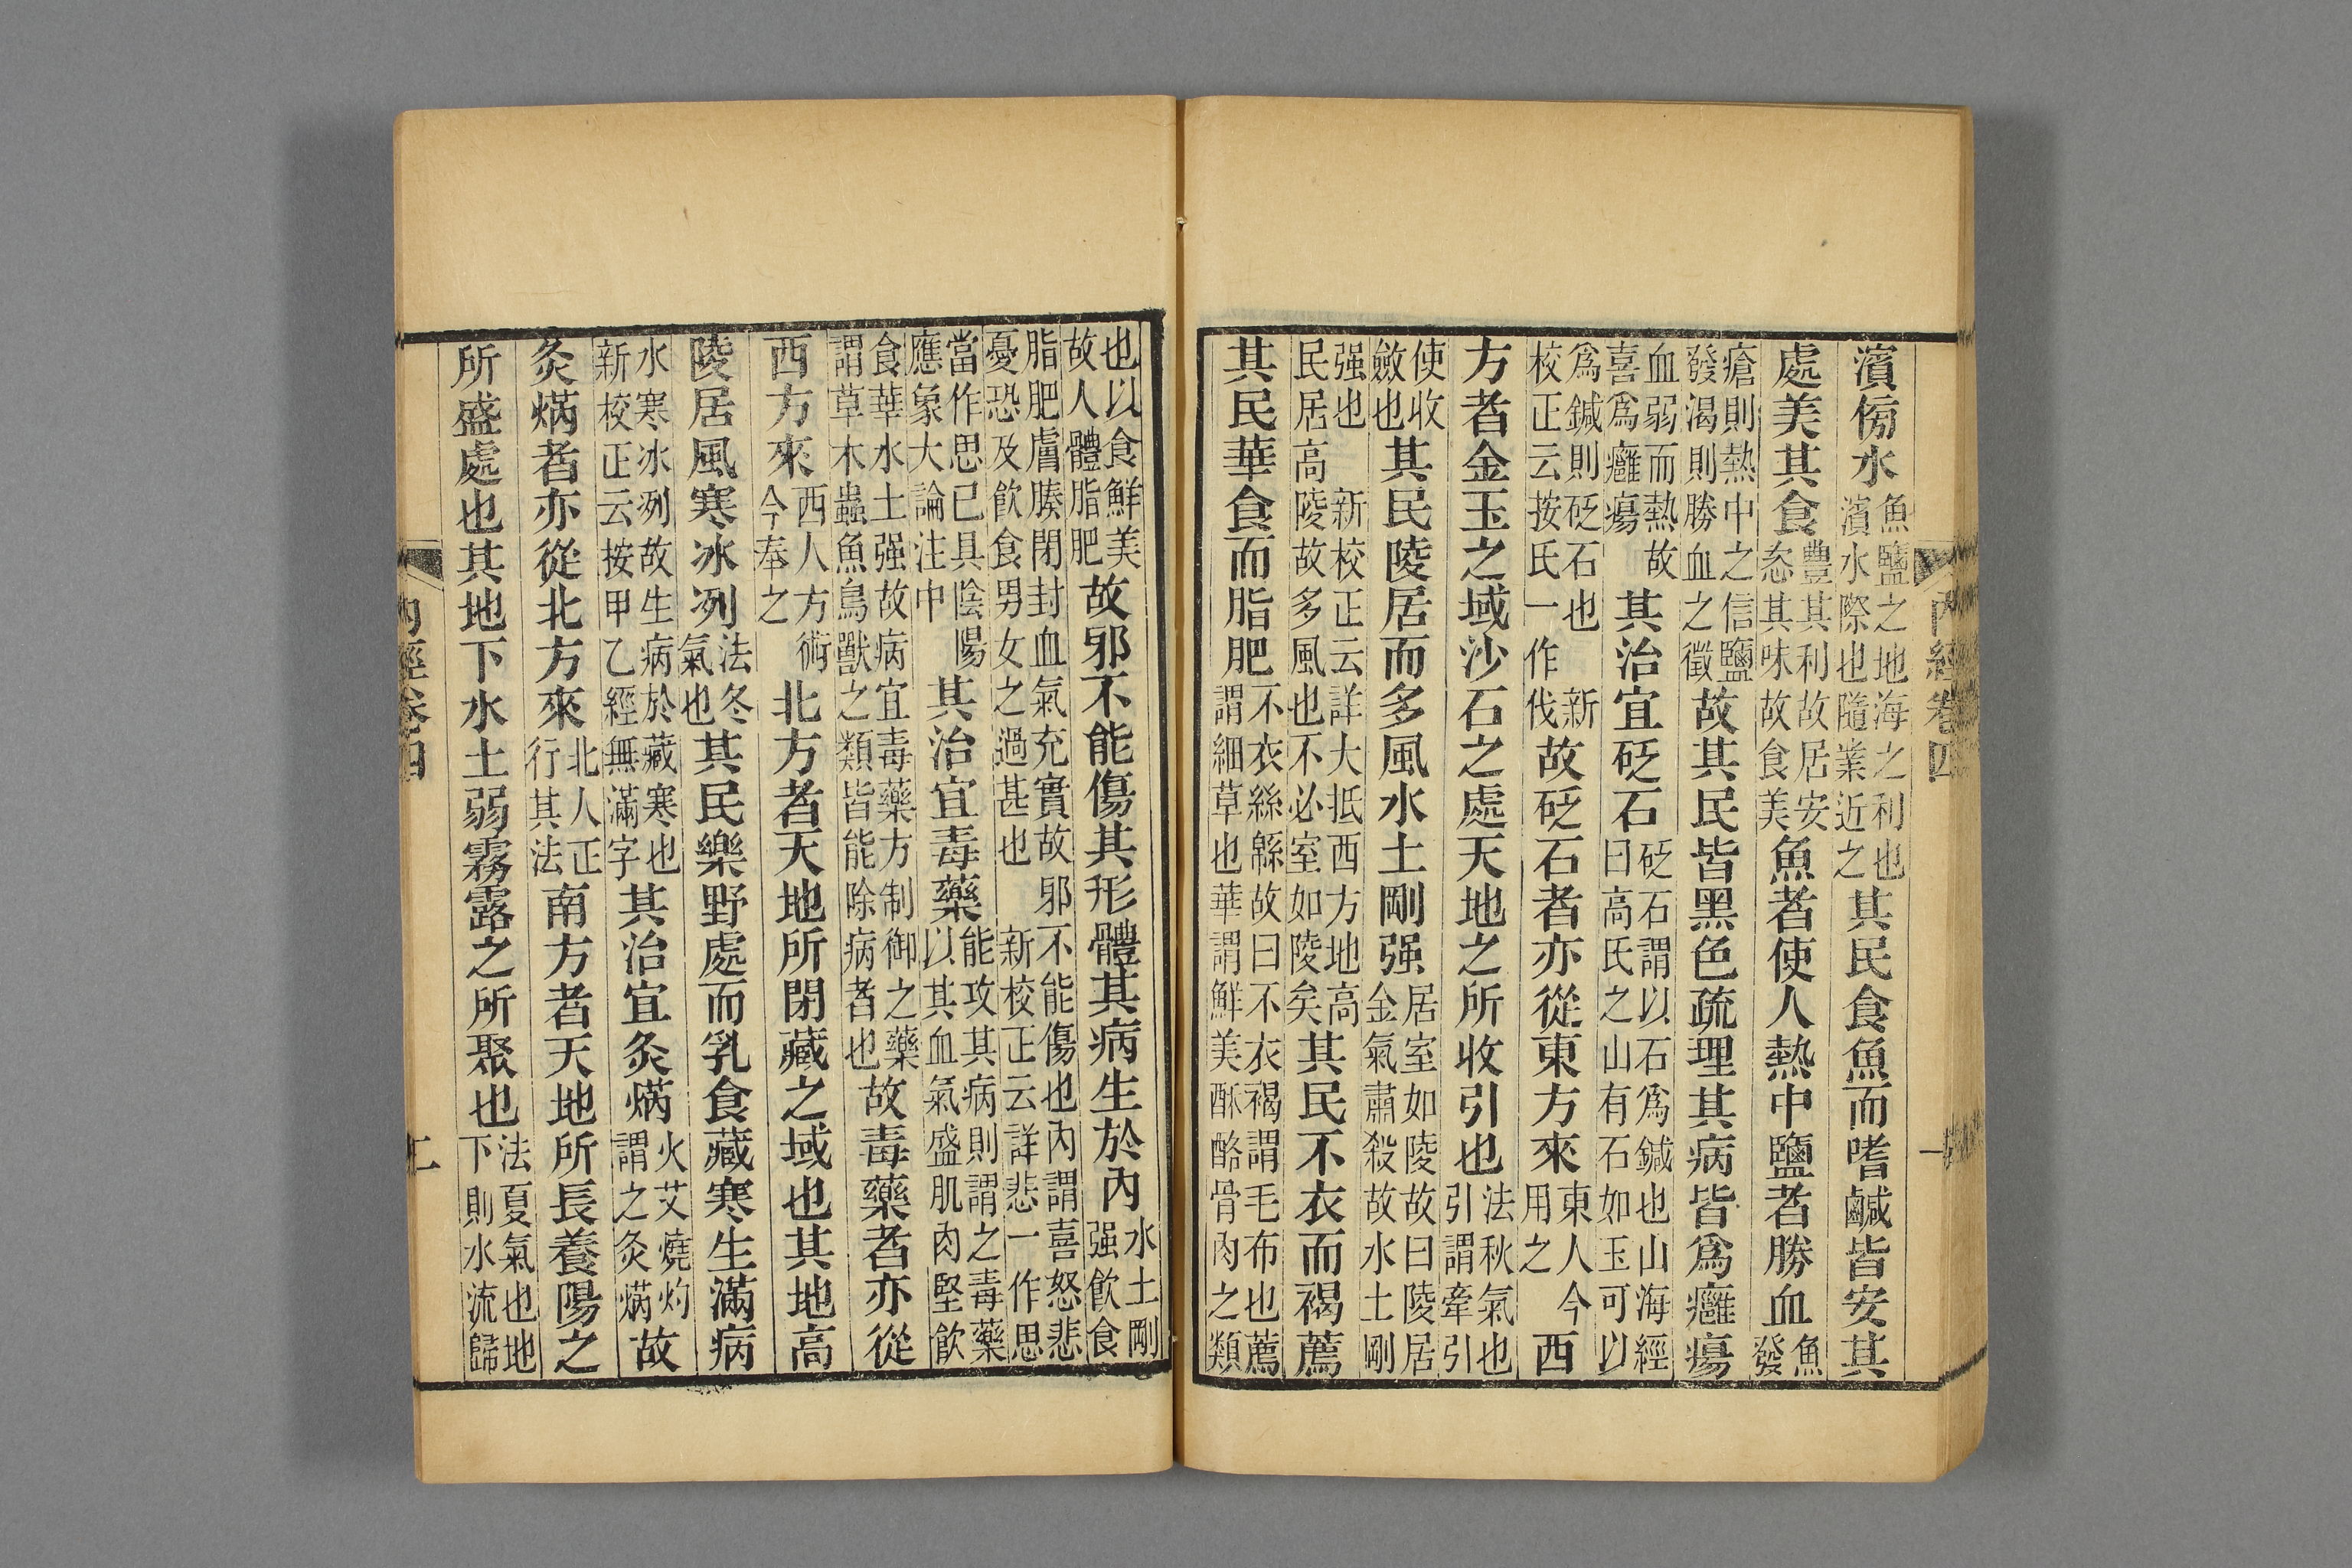 濱傍水魚鹽之地海之利也濱水際也隨業近之其民食魚而嗜鹹皆安其
處美其食豐其利故居安恣其味故食美魚者使人熱中鹽者勝血魚發
瘡則熱中之信鹽發渴則勝血之徵故其民皆黑色疏理其病皆爲癰瘍
血弱而熱故喜爲癰瘍其治宜砭石砭石謂以石爲鍼也山海經曰高氏之山有石如玉可以
爲鍼則砭石也新校正云按氏一作伐故砭石者亦從東方來東人今用之西
方者金玉之域沙石之處天地之所收引也法秋氣也引謂牽引
使收斂也其民陵居而多風水土剛强居室如陵故曰陵居金氣肅殺故水土剛
强也新校正云詳大抵西方地高民居高陵故多風也不必室如陵矣其民不衣而褐薦
其民華食而脂肥不衣絲緜故曰不衣褐謂毛布也薦謂細草也華謂鮮美酥酪骨肉之類
內經卷四
一
也以食鮮美故人體脂肥故邪不能傷其形體其病生於內水土剛强飲食
脂肥膚腠閉封血氣充實故邪不能傷也內謂喜怒悲憂恐及飲食男女之過甚也新校正云詳悲一作思
當作思已具陰陽應象大論注中其治宜毒藥能攻其病則謂之毒藥以其血氣盛肌肉堅飲
食華水土强故病宜毒藥方制御之藥謂草木蟲魚鳥獸之類皆能除病者也故毒藥者亦從
西方來西人方術今奉之北方者天地所閉藏之域也其地高
陵居風寒冰冽法冬氣也其民樂野處而乳食藏寒生滿病
水寒冰冽故生病於藏寒也新校正云按甲乙經無滿字其治宜灸焫火艾燒灼謂之灸焫故
灸焫者亦從北方來北人正行其法南方者天地所長養陽之
所盛處也其地下水土弱霧露之所聚也法夏氣也地下則水流歸
內經卷四